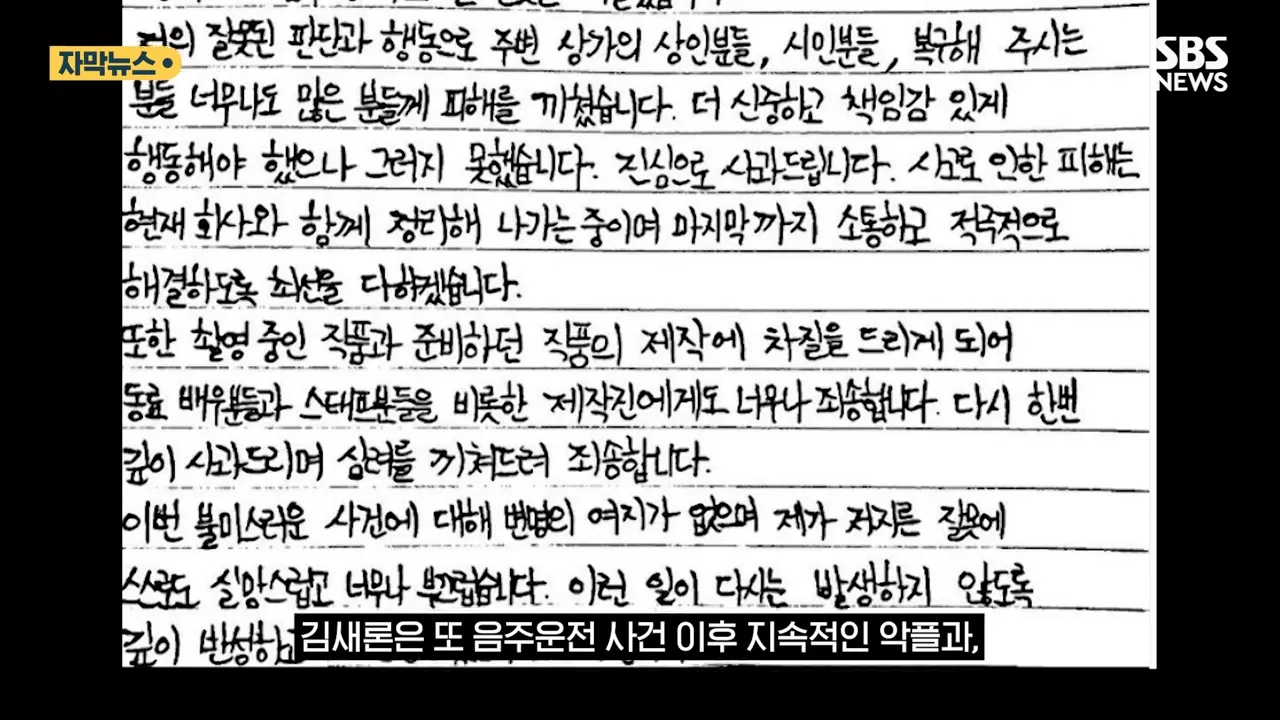 자막뉴스
SBS
NEWS
저의 잘못된 판단과 행동으로 주변 상가의 상인분들, 시민분들, 복구해 주시는
분들 너무나도 많은 분들께 피해를 끼쳤습니다. 더 신중하고 책임감 있게
행동해야 했으나 그러지 못했습니다. 진심으로 사과드립니다. 사고로 인한 피해는
현재 회사와 함께 정리해 나가는 중이며 마지막까지 소통하고 적극적으로
해결하도록 최선을 다하겠습니다.
또한 촬영 중인 작품과 준비하던 작품의 제작에 차질을 드리게 되어
동료 배우분들과 스태프분들을 비롯한 제작진에게도 너무나 죄송합니다. 다시 한번
깊이 사과드리며 심려를 끼쳐드려 죄송합니다.
이번 불미스러운 사건에 대해 변명의 여지가 없으며 제가 저지른 잘못에
스스로도 실망스럽고 너무나 부끄럽습니다. 이런 일이 다시는 발생하지 않도록
깊이 반성하고
김새론은 또 음주운전 사건 이후 지속적인 악플과,